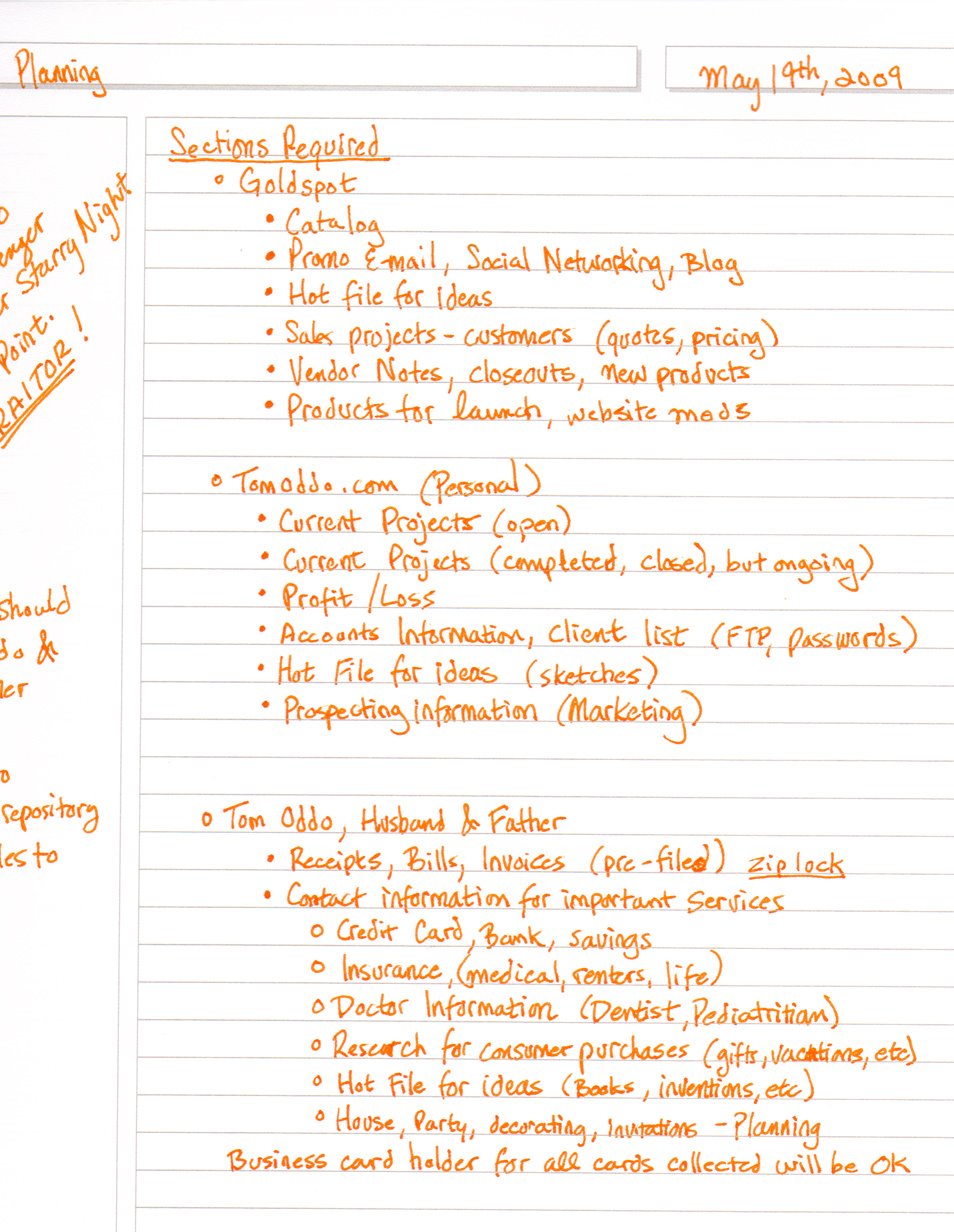 Planning
May 19th, 2009
Starry Night
Point.
!
should
&
repository
to
Sections Required
• Goldspot
• Catalog
• Promo E-mail, Social Networking, Blog
• Hot file for ideas
• Sales projects - customers (quotes, pricing)
• Vendor Notes, closeouts, new products
• Products for launch, website mods
• TomOddo.com (Personal)
• Current Projects (open)
• Current Projects (completed, closed, but ongoing)
• Profit / Loss
• Accounts Information, client list (FTP, passwords)
• Hot File for ideas (sketches)
• Prospecting information (Marketing)
• Tom Oddo, Husband & Father
• Receipts, Bills, Invoices (pre-filed) ziplock
• Contact information for important Services
o Credit Card, Bank, savings
o Insurance, (medical, renters, life)
o Doctor Information (Dentist, Pediatritian)
o Research for consumer purchases (gifts, vacations, etc)
o Hot File for ideas (Books, inventions, etc)
o House, Party, decorating, invitations - Planning
Business card holder for all cards collected will be OK